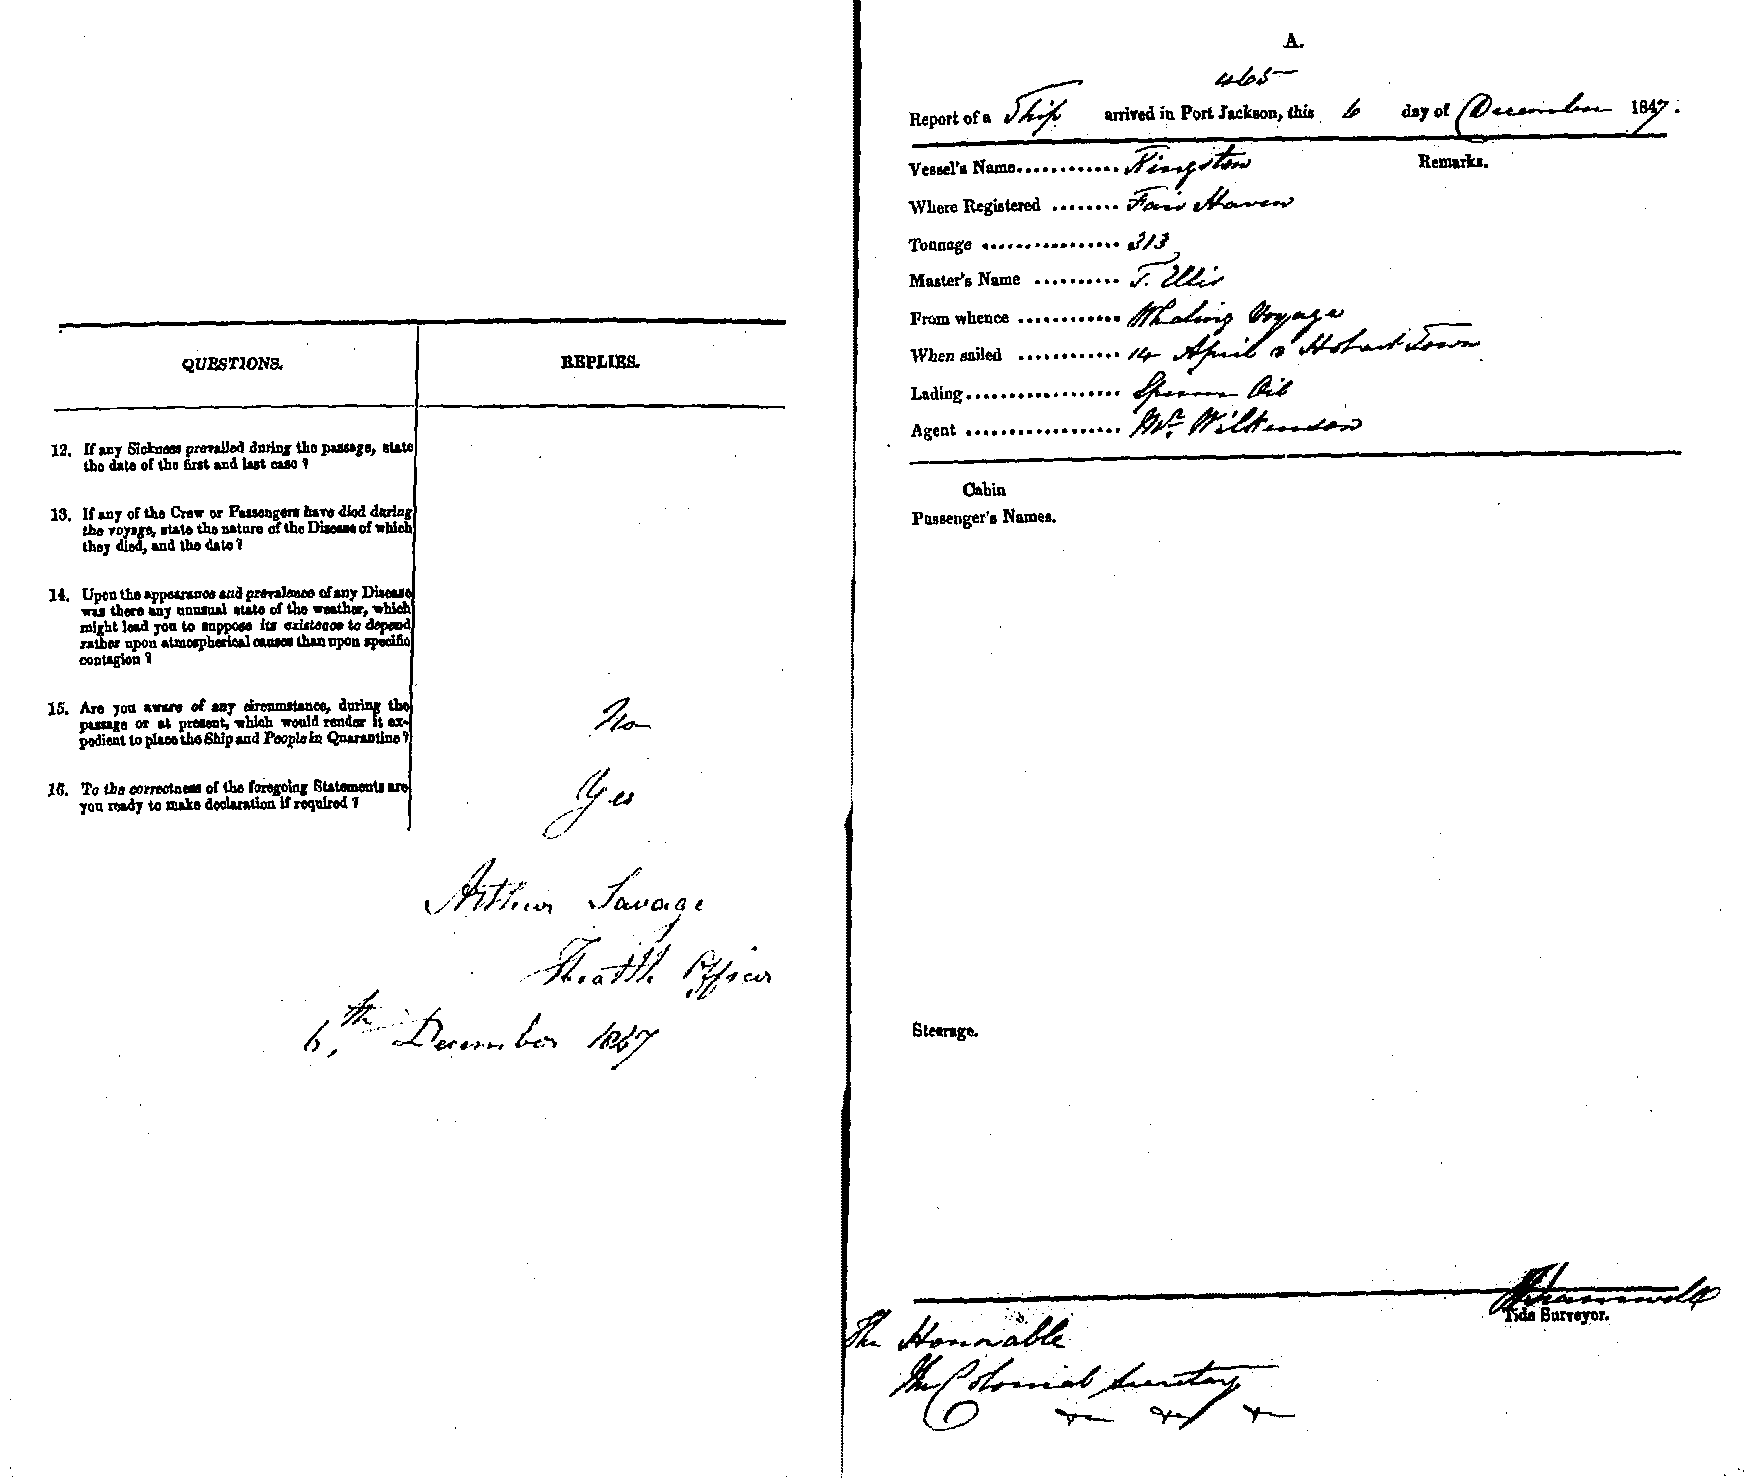 QUESTIONS.
REPLIES.
12. If any Sickness prevailed during the passage, state
the date of the first and last case ?
13. If any of the Crew or Passengers have died during
the voyage, state the nature of the Disease of which
they died, and the date ?
14. Upon the appearance and prevalence of any Disease
was there any unusual state of the weather, which
might lead you to suppose its existence to depend
rather upon atmospherical causes than upon specific
contagion ?
15. Are you aware of any circumstance, during the
passage or at present, which would render it ex-
pedient to place the Ship and People in Quarantine ?
No
16. To the correctness of the foregoing Statements are
you ready to make declaration if required ?
Yes
Arthur Savage
Health Officer
6th December 1847
A.
465
Report of a Ship arrived in Port Jackson, this 6 day of December 1847.
Vessel's Name............ Kingston
Remarks.
Where Registered ........ Fair Haven
Tonnage ................. 313
Master's Name .......... T. Ellis
From whence ............ Whaling Voyage
When sailed ............ 14 April Hobart Town
Lading.................. Sperm Oil
Agent .................. Mr. Wilkinson
Cabin
Passenger's Names.
Steerage.
Tide Surveyor.
The Honorable
The Colonial Secretary